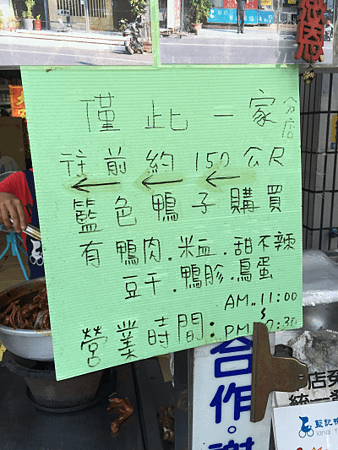 感恩
僅此一家 分店
往前約150公尺
← ← ←
籃色鴨子購買
有鴨肉.米血.甜不辣
豆干.鴨胗.鳥蛋
營業時間:AM.11:00
PM
合作.謝
店
統一